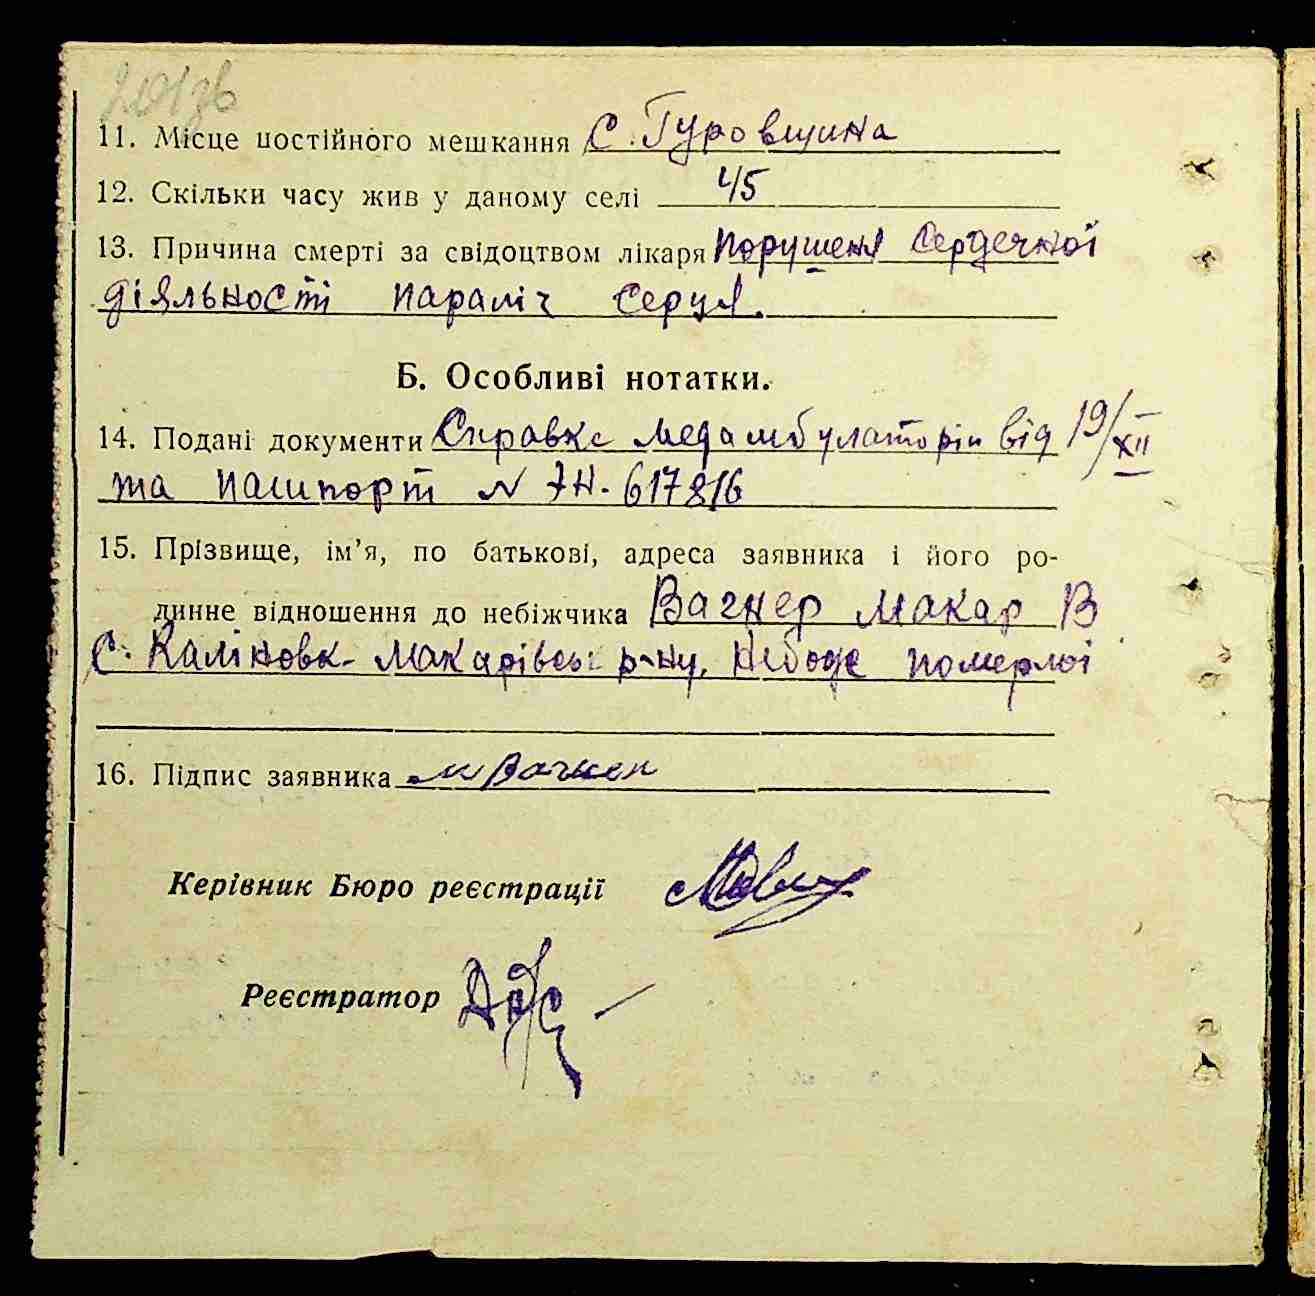 201зв
11. Місце постійного мешкання С. Гуровщина
12. Скільки часу жив у даному селі 45
13. Причина смерті за свідоцтвом лікаря порушеня сердечної
діяльності параліч серця.
Б. Особливі нотатки.
14. Подані документи Справке медамбулаторіи від 19/XII
та пашпорт N 617816
15. Прізвище, ім’я, по батькові, адреса заявника і його ро-
динне відношення до небіжчика Вагнер Макар В
С. Калиновк- Макарівськ р-ну, небоже померлої
16. Підпис заявника м Вагнер
Керівник Бюро реєстрації
Реєстратор